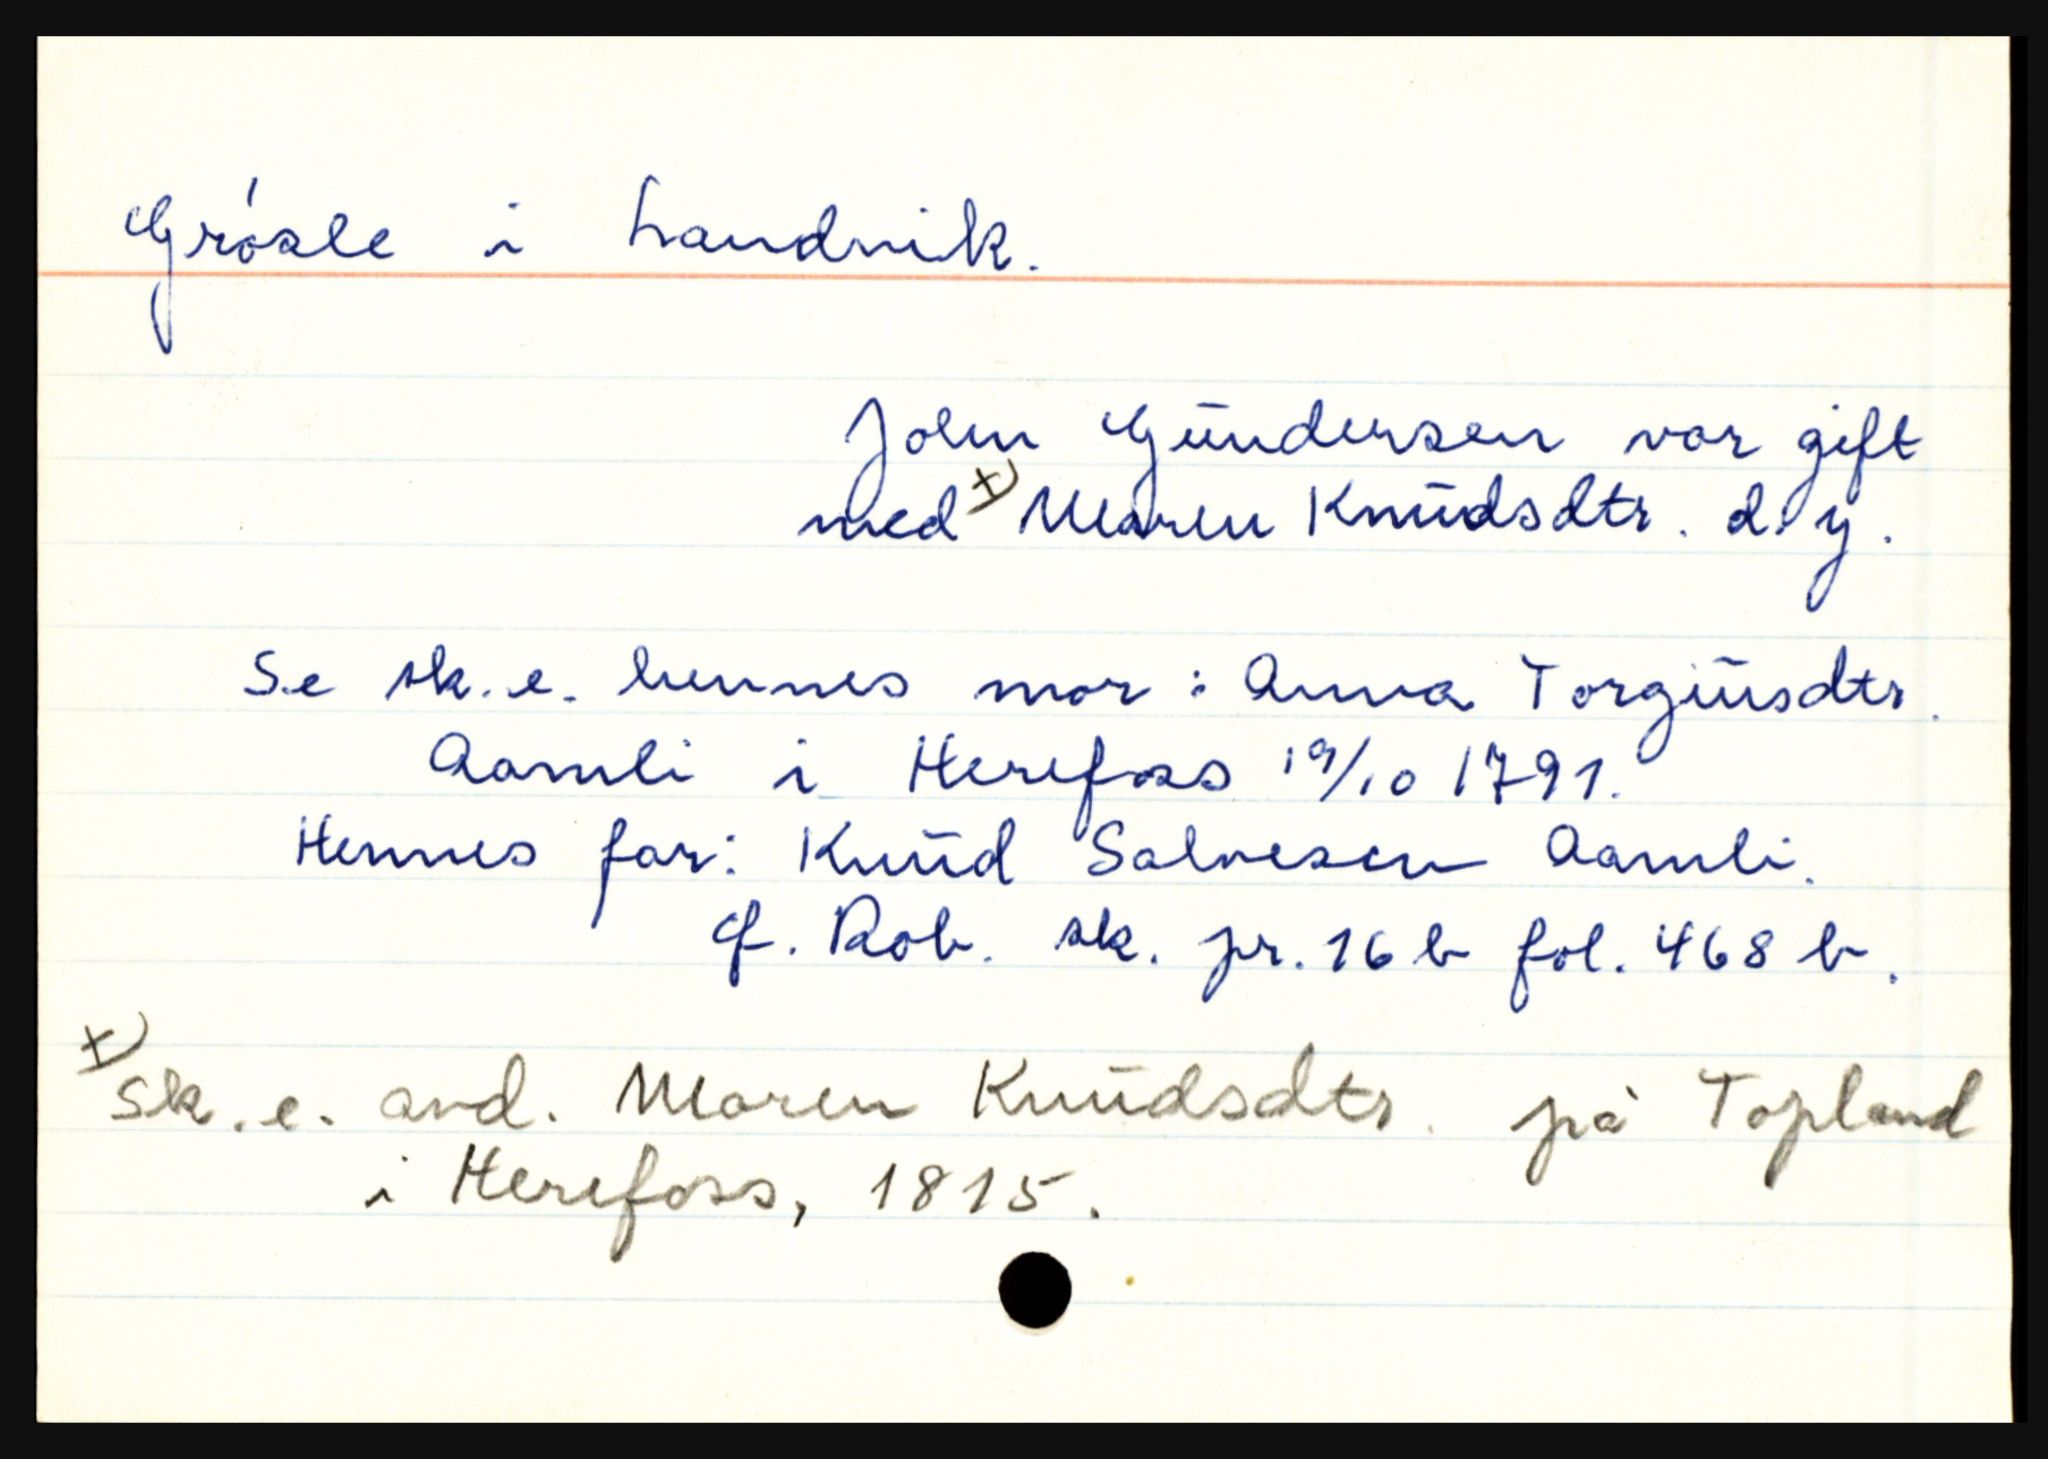 Grøsle i Landvik.
John Gundersen var gift
med x) Maren Knudsdtr. d.y.
Se sk.e. hennes mor: Anna Torgiusdtr.
Aamli i Herefoss 19/10 1791.
Hennes far: Knud Salvesen Aamli.
cf. Rob. sk. pr. 16 b fol. 468 b.
x) Sk.e. avd. Maren Knudsdtr. på Topland
i Herefoss, 1815.